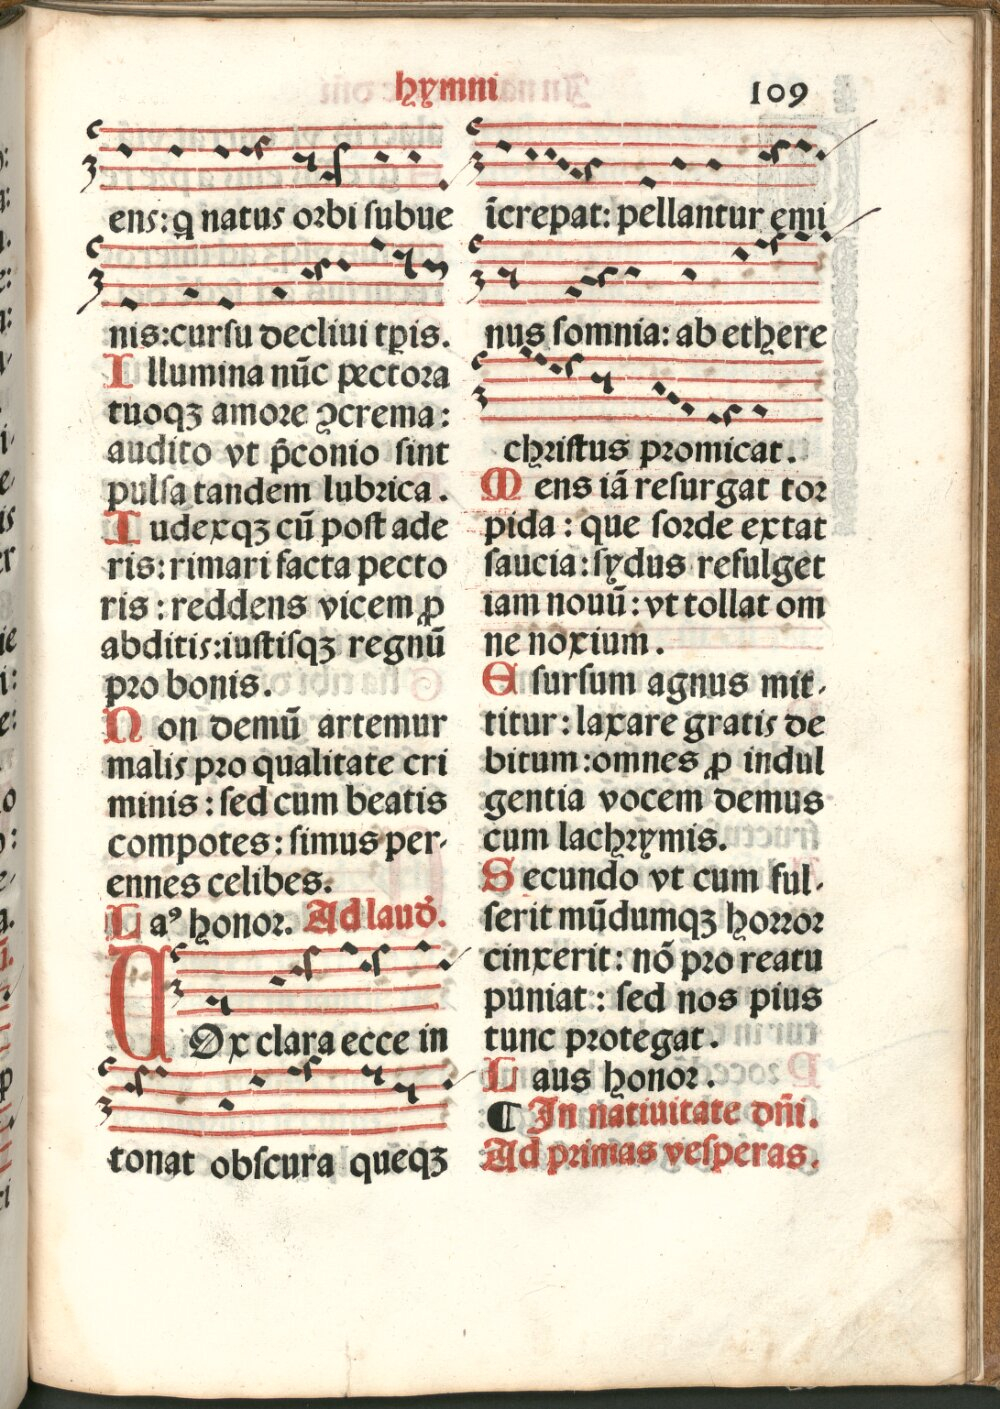 hymni
109
ens: q natus orbi subue
nis: cursu decliui tp̄is.
Illumina nūc pectora
tuoqꝫ amore ꝯcrema:
audito vt p̄conio sint
pulsa tandem lubrica.
Iudexqꝫ cū post ade
ris: rimari facta pecto
ris: reddens vicem ꝓ
abditis: iustisqꝫ regnū
pro bonis.
Non demū artemur
malis pro qualitate cri
minis: sed cum beatis
compotes: simus per-
ennes celibes.
Laꝰ honor. Ad laud̄.
VOx clara ecce in
tonat obscura queqꝫ
īcrepat: pellantur emi
nus somnia: ab ethere
christus promicat.
Mens iā resurgat tor
pida: que sorde extat
saucia: sydus refulget
iam nouū: vt tollat om
ne noxium.
E sursum agnus mit-
titur: laxare gratis de
bitum: omnes ꝓ indul
gentia vocem demus
cum lachrymis.
Secundo vt cum ful-
serit mūdumqꝫ horror
cinxerit: nō pro reatu
puniat: sed nos pius
tunc protegat.
Laus honor.
¶ In natiuitate dn̄i.
Ad primas vesperas.